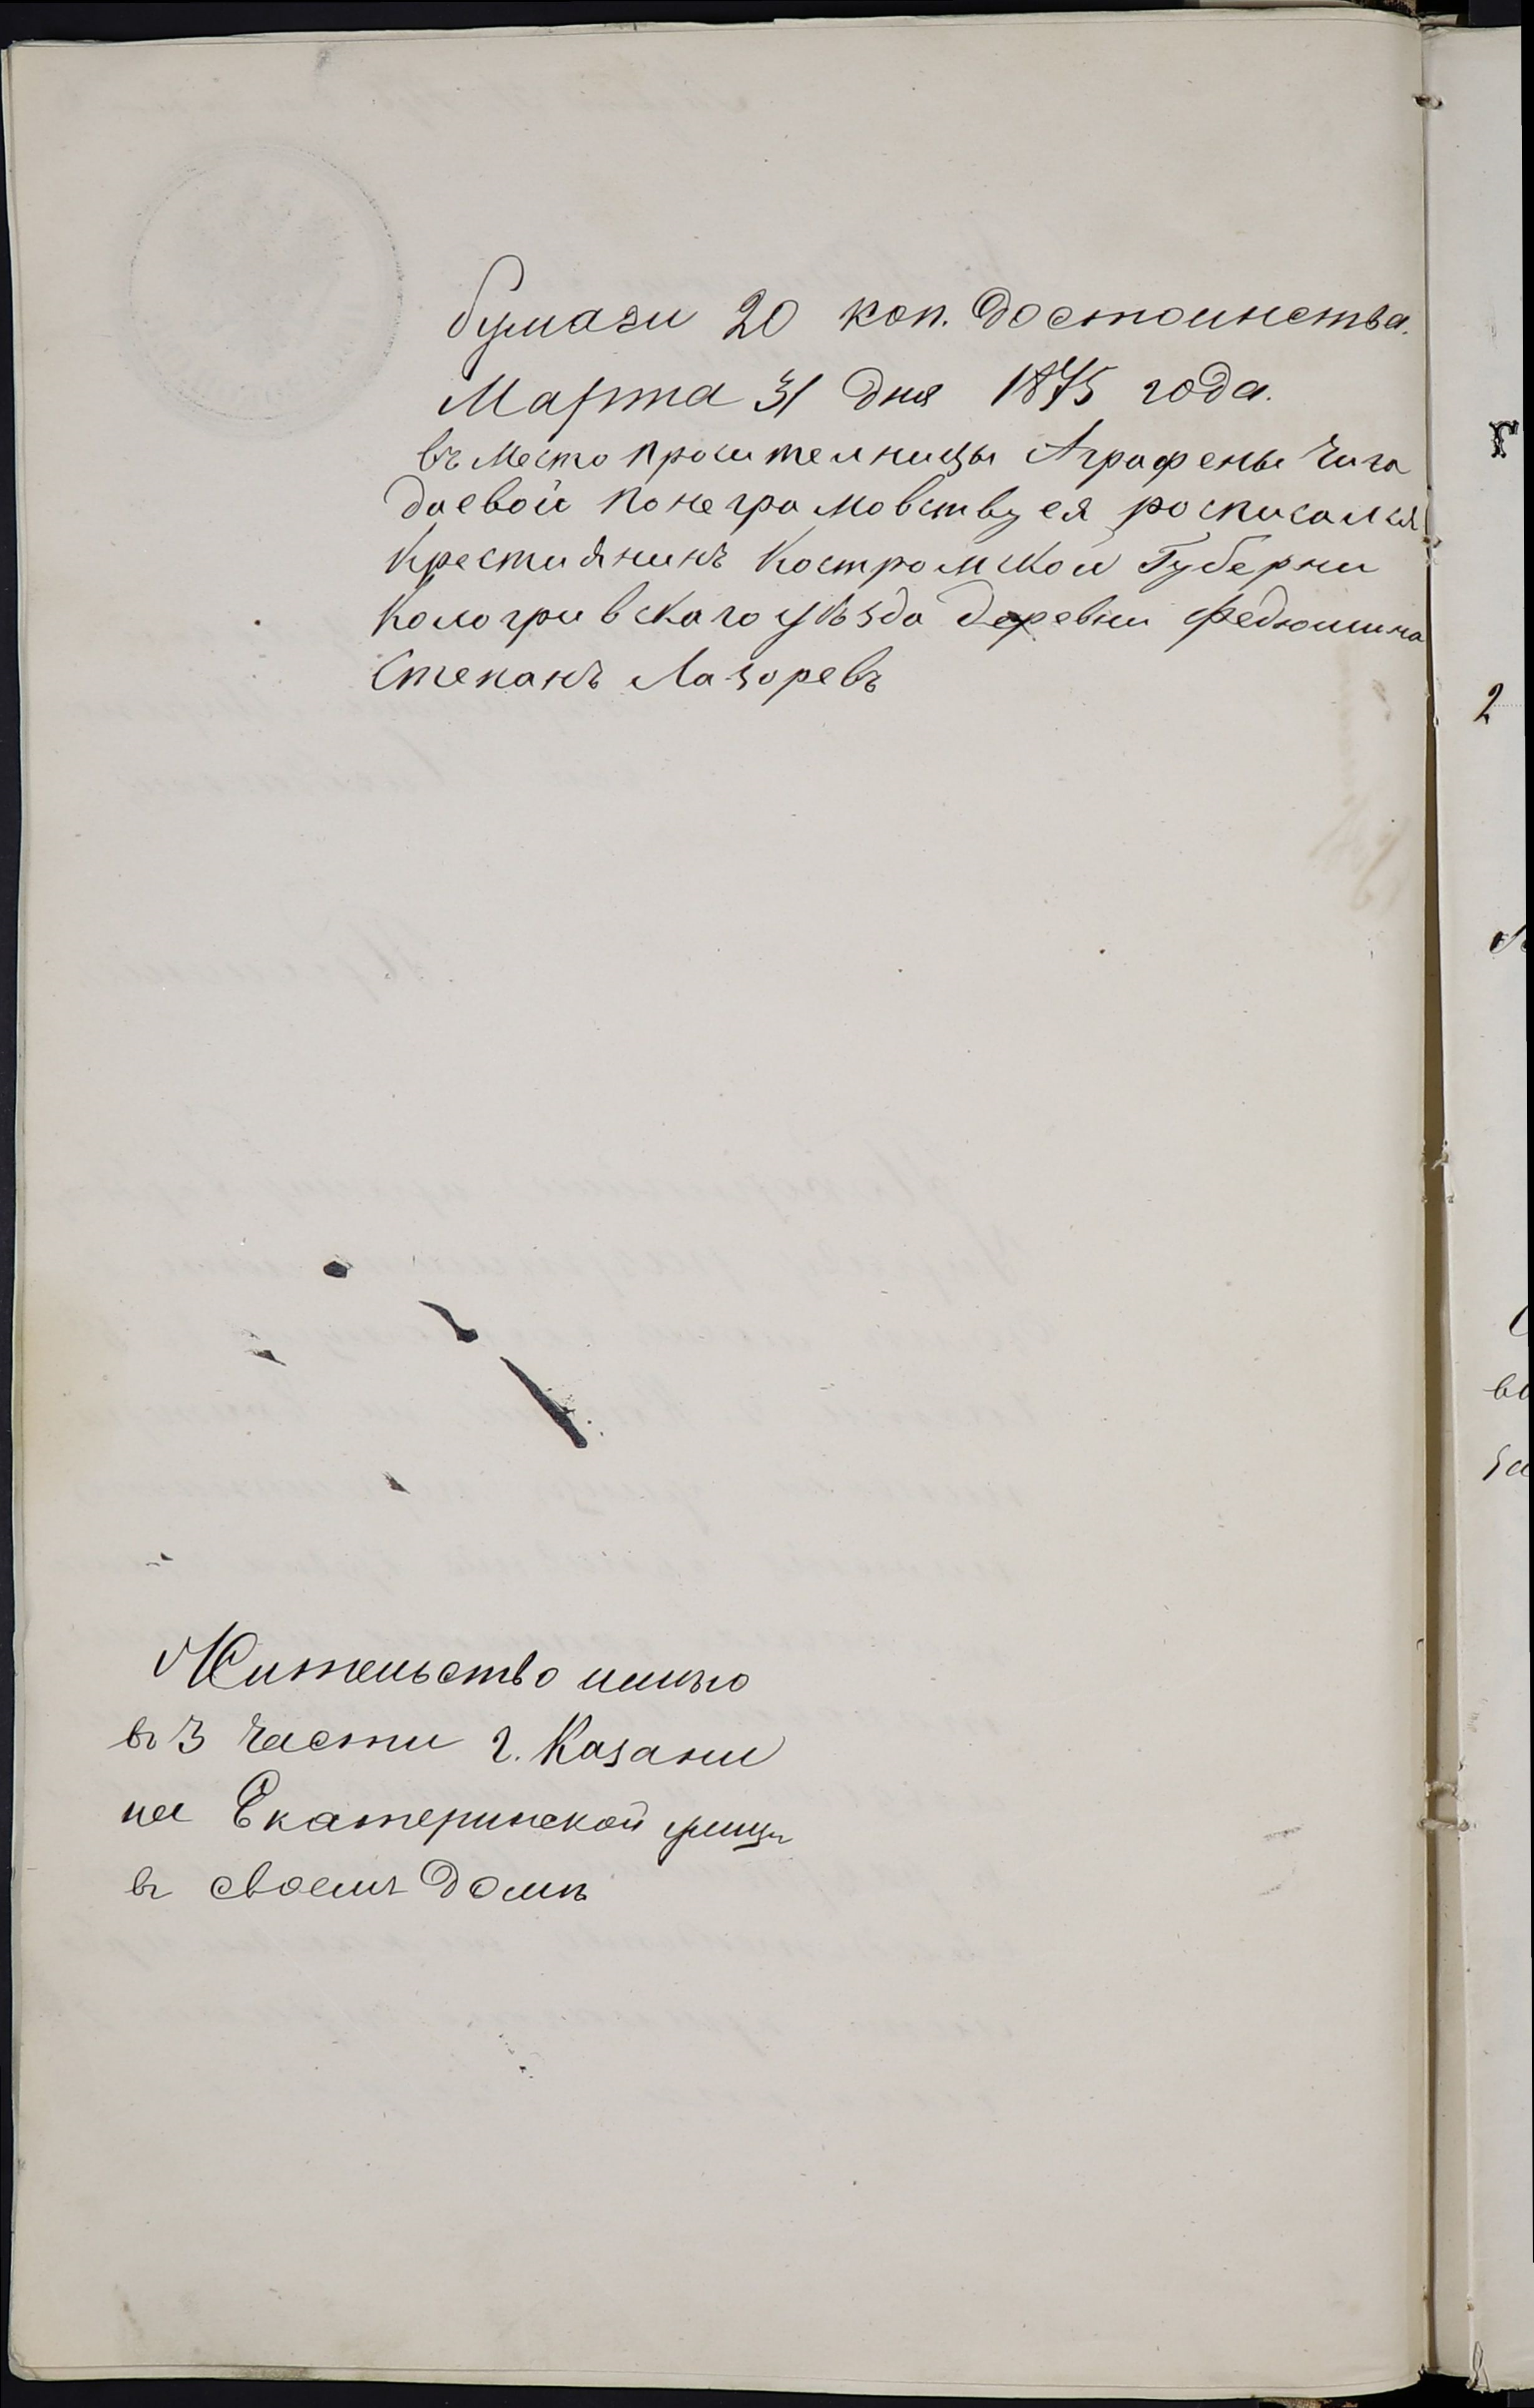 бумази 20 коп. достоинства.
Марта 31 дня 1875 года.
въ место просителницы Аграфены Чига
даевой понеграмовству ея росписался
Крестиянинъ Костромской Губерни
Кологривскаго уѣзда деревни Федюшина
Степанъ Лазоревъ
Жительство имѣю
въ 3 части г. Казани
на Екатеринской улицы
въ своемъ домѣ